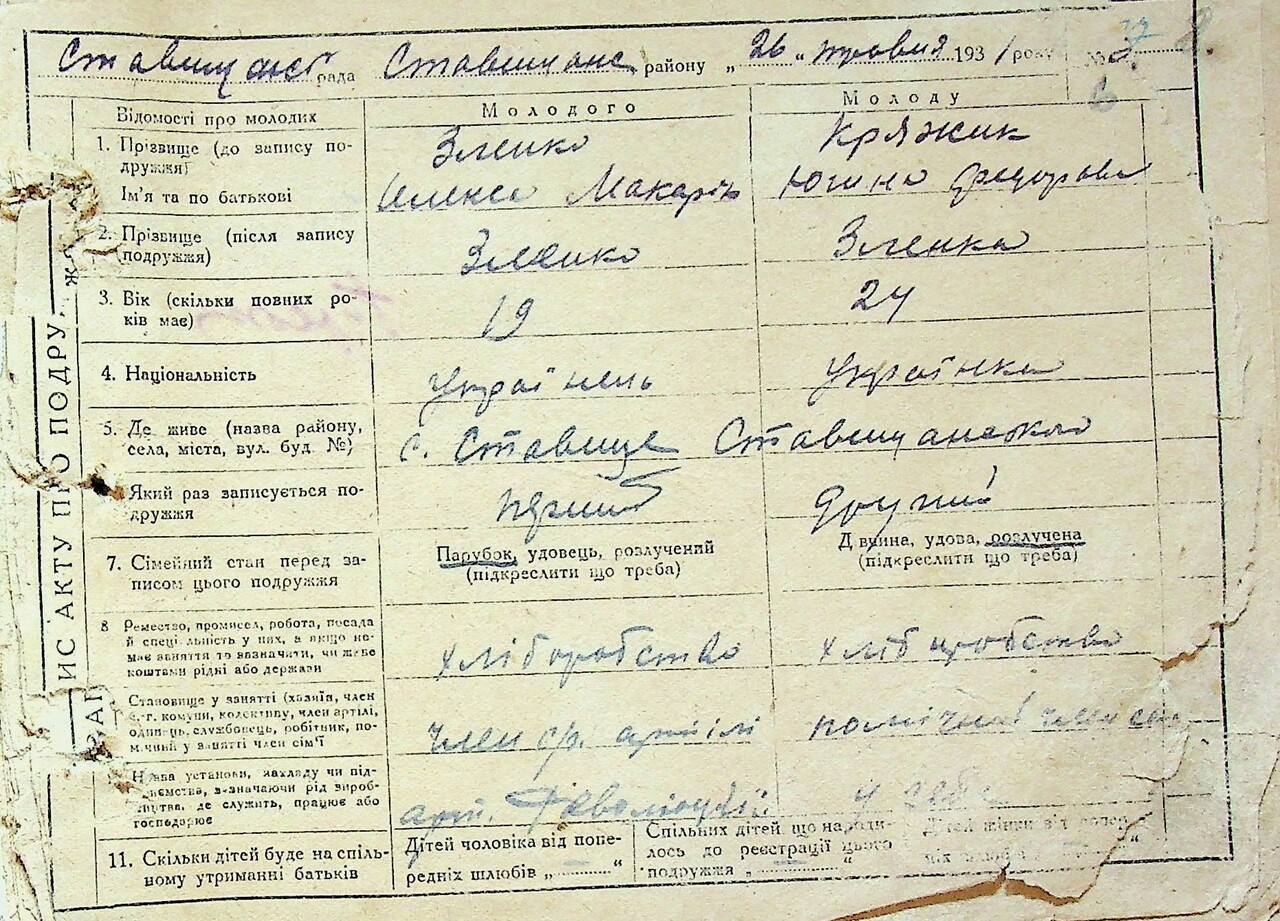 Ставищанс рада Ставищанс району „ 26 " травня 1931 року №
Відомості про молодих
Молодого
Молоду
1. Прізвище (до запису по-
дружжя)
Зленко
Кряжик
Ім'я та по батькові
Олекса Макарів
Югина Федорова
2. Прізвище (після запису
(подружжя)
Зленко
Зленка
3. Вік (скільки повних ро-
ків має)
19
24
4. Національність
Українець
Українка
5. Де живе (назва району,
села, міста, вул. буд №)
с. Ставище Ставищанского
Який раз записується по-
дружжя
перший
другий
7. Сімейний стан перед за-
писом цього подружжя
Парубок, удовець, розлучений
(підкреслити що треба)
Дівчина, удова, розлучена
(підкреслити що треба)
8 Ремество, промисел, робота, посада
й спеціяльність у них, а якщо не-
має заняття то вазначити, чи живе
коштами рідні або держави
хліборобство
хліборобство
Становище у занятті (хазяїн, член
с.-г. комуни, колективу, член артілі,
одинець, службовець, робітник, по-
мічний у занятті член сім'ї
член с/г. артілі
помічний член
Назва установи, закладу чи під-
приємства, вазначаючи рід вироб-
ництва, де служить, працює або
господарює
арт.
у себе
11. Скільки дітей буде на спіль-
ному утриманні батьків
Дітей чоловіка від попе-
редніх шлюбів „ — "
Спільних дітей, що народи-
лось до реєстрації цього
подружжя „ — "
Дітей жінки від попер-
ніх шлюбів
ИС АКТУ ПРО ПОДРУ